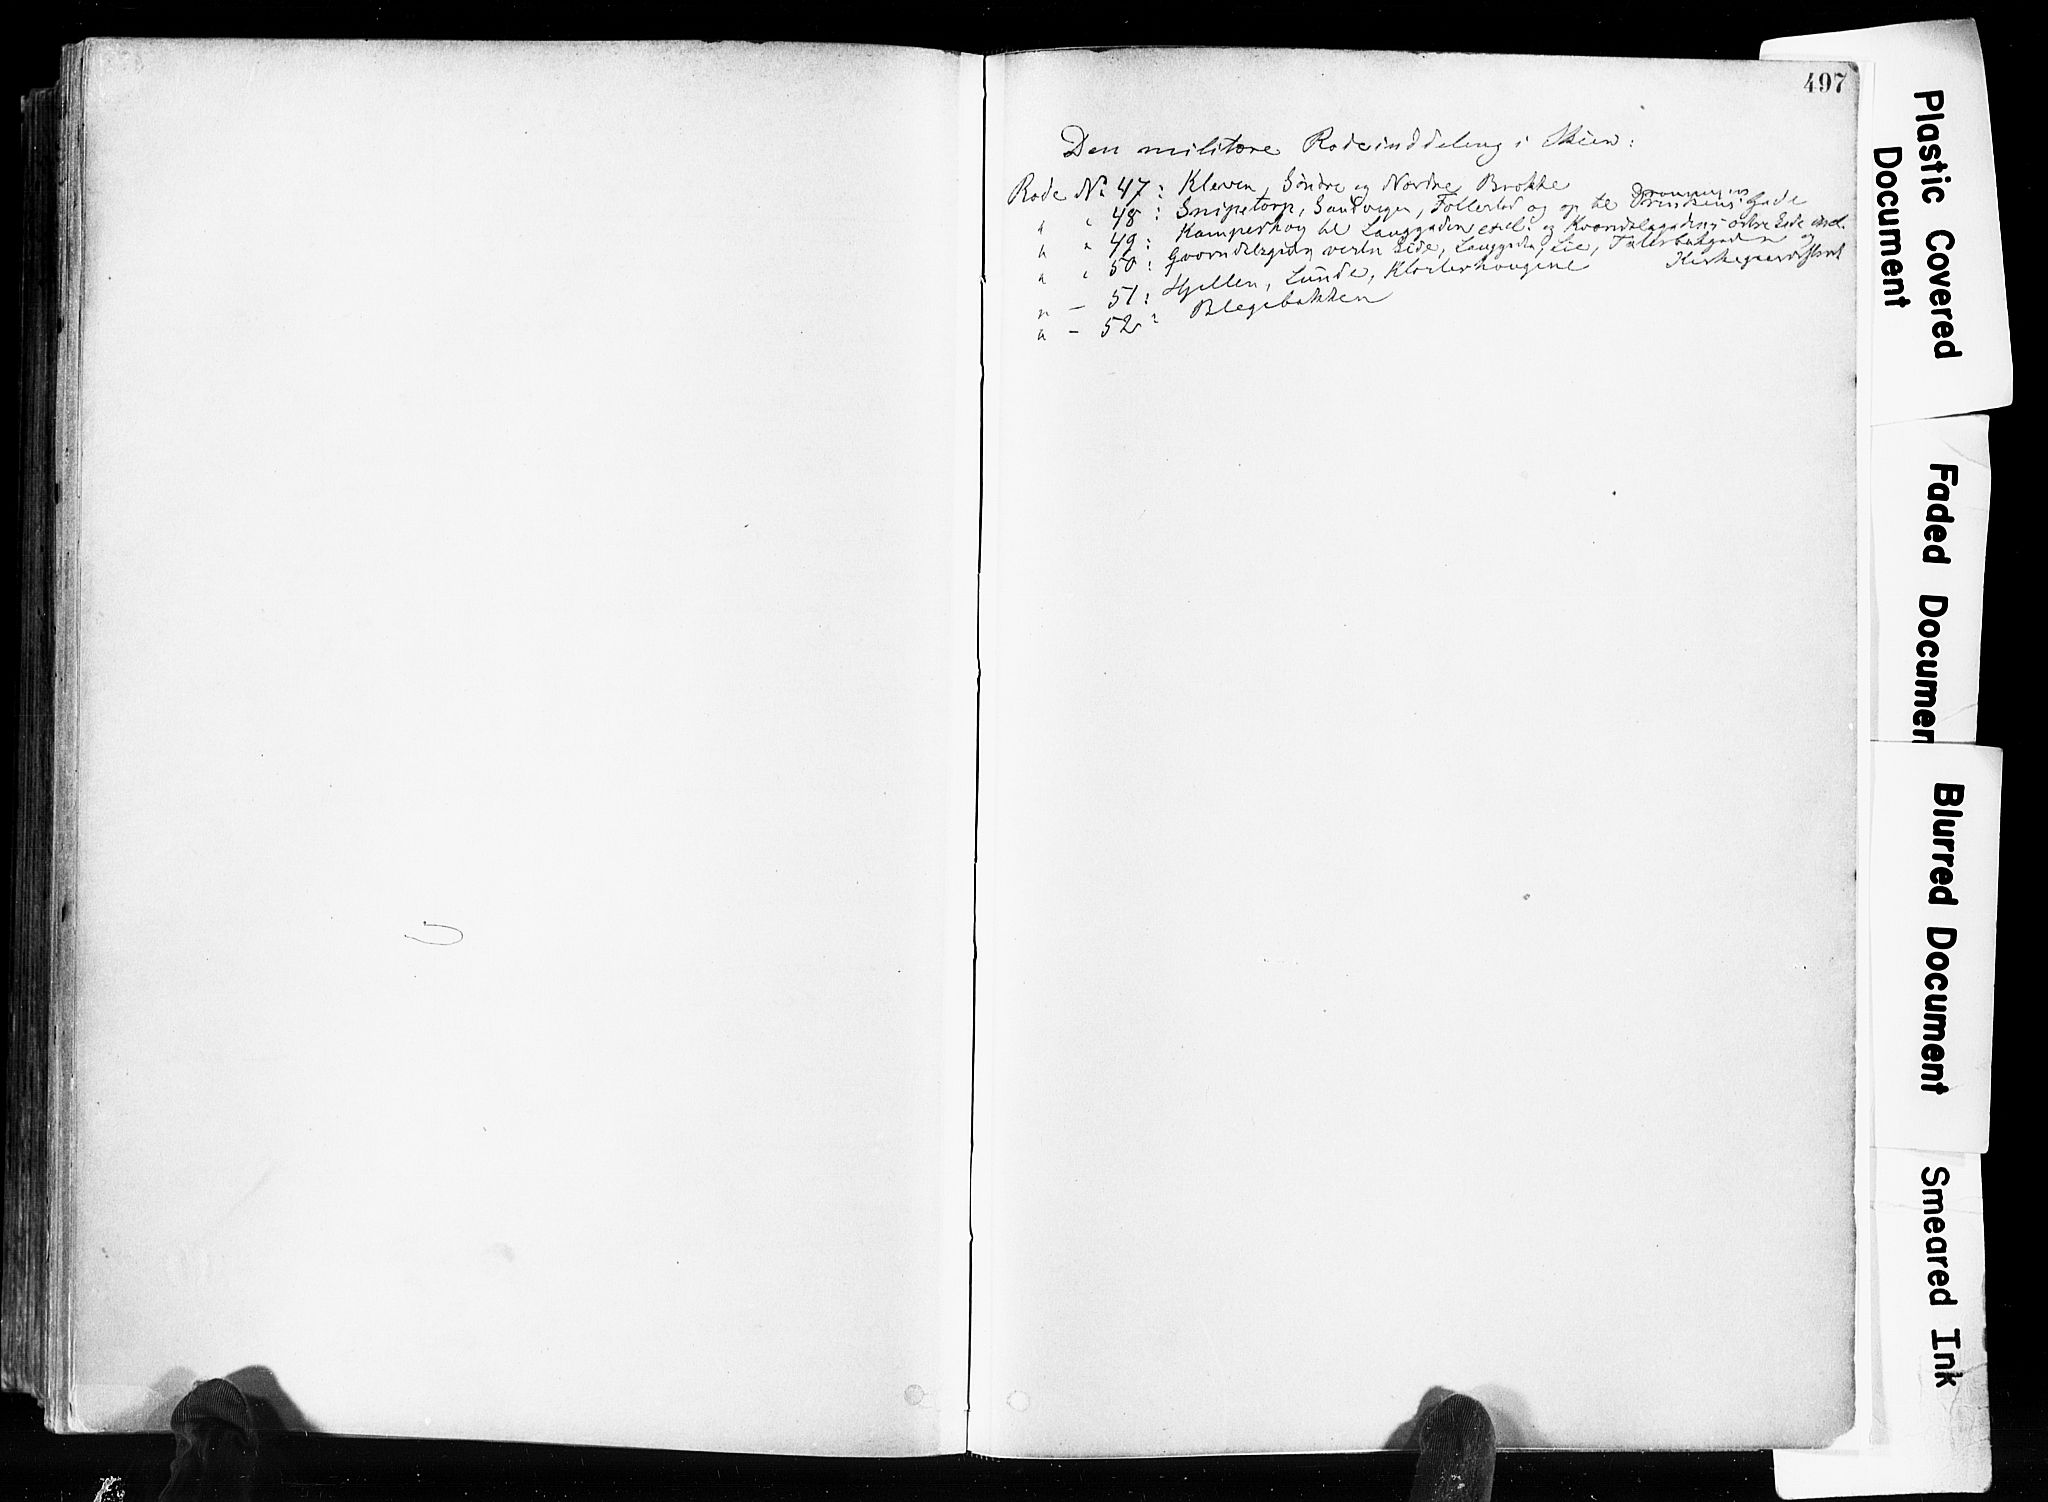 497
Den militære Rodeinddeling i Skien:
Rode No 47: Kleven, Søndre og Nordre Brække
" " 48: Snipetorp, Sandvegen, Follestad og op til Dronningens Prindsens Gade
" " 49: Kamperhoug til Langgaden excl. og Kværndalsgadens østre Side incl.
" " 50: Qværndalsgadens vestre Side, Langgaden, Lie, Telesbækgaden og
Kirkegaardsstræt
" - 51: Hjellen, Lunde, Klosterhougene
" - 52: Blegebakken
Plastic Covered
Document
Faded Documen
Blurred Document
Smeared Ink